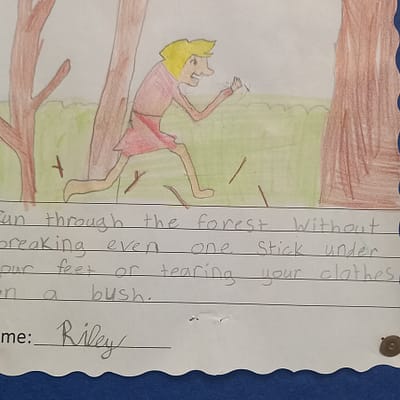 Run through the forest without
breaking even one stick under
your feet or tearing your clothes
on a bush.
me: Riley